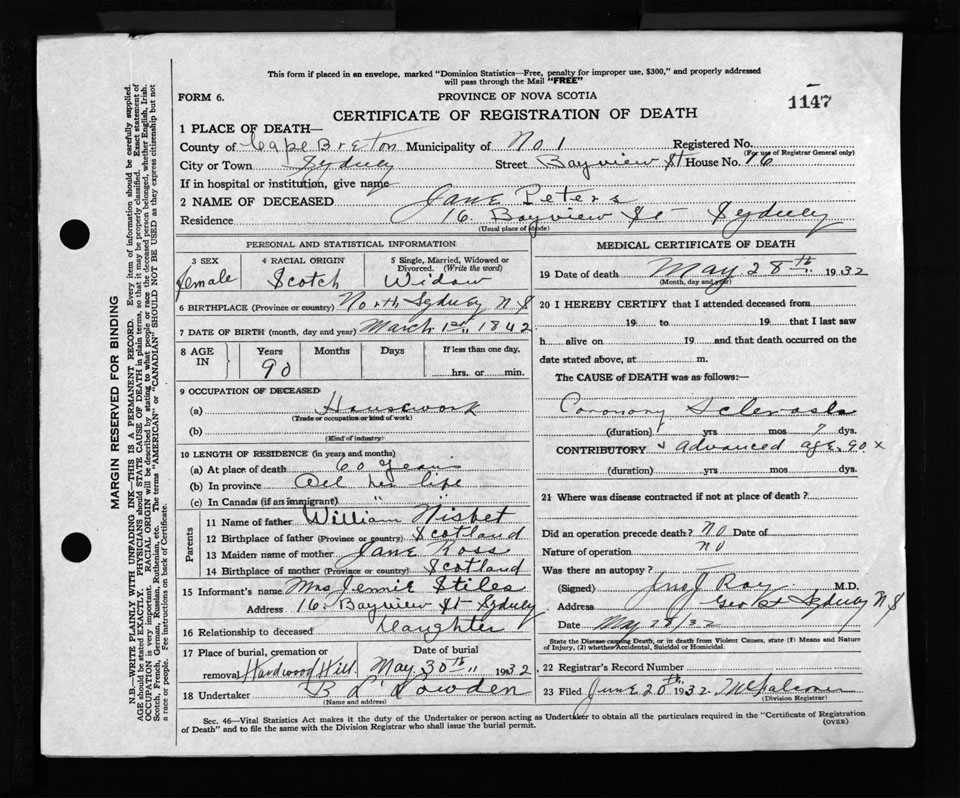 This form if placed in an envelope, marked "Dominion Statistics—Free, penalty for improper use, $300," and properly addressed
will pass through the Mail "FREE"
FORM 6.
PROVINCE OF NOVA SCOTIA
1147
CERTIFICATE OF REGISTRATION OF DEATH
1 PLACE OF DEATH—
County of Cape Breton Municipality of No 1 Registered No.
(For use of Registrar General only)
City or Town Sydney Street Bayview St House No. 16
If in hospital or institution, give name
2 NAME OF DECEASED Jane Peters
Residence 16. Bayview St - Sydney
(Usual place of abode)
PERSONAL AND STATISTICAL INFORMATION
3 SEX 4 RACIAL ORIGIN 5 Single, Married, Widowed or
Divorced. (Write the word)
female Scotch Widow
6 BIRTHPLACE (Province or country) North Sydney N S
7 DATE OF BIRTH (month, day and year) March 1st, 1842
8 AGE IN Years Months Days If less than one day,
90 hrs. or min.
9 OCCUPATION OF DECEASED
(a) Housework
(Trade or occupation or kind of work)
(b)
(Kind of industry)
10 LENGTH OF RESIDENCE (in years and months)
(a) At place of death 60 Years
(b) In province All her life
(c) In Canada (if an immigrant) " "
Parents
11 Name of father William Nisbet
12 Birthplace of father (Province or country) Scotland
13 Maiden name of mother Jane Ross
14 Birthplace of mother (Province or country) Scotland
15 Informant's name Mrs Jennie Stiles
Address 16. Bayview St - Sydney
16 Relationship to deceased Daughter
17 Place of burial, cremation or Date of burial
removal Hardwood Hill. May 30th " 1932
18 Undertaker B L Lowden
(Name and address)
MEDICAL CERTIFICATE OF DEATH
19 Date of death May 28th 1932
(Month, day and year)
20 I HEREBY CERTIFY that I attended deceased from
19 to 19 that I last saw
h alive on 19 and that death occurred on the
date stated above, at m.
The CAUSE of DEATH was as follows:—
Coronary Sclerosis
(duration) yrs mos ? dys.
CONTRIBUTORY + advanced age, 90 x
(duration) yrs mos dys.
21 Where was disease contracted if not at place of death?
Did an operation precede death? No Date of
Nature of operation no
Was there an autopsy?
(Signed) Roy M.D.
Address Geo St Sydney N S
Date May 28/32
State the Disease causing Death, or in death from Violent Causes, state (1) Means and Nature
of Injury, (2) whether Accidental, Suicidal or Homicidal.
22 Registrar's Record Number
23 Filed June 20th 1932
(Division Registrar)
Sec. 46—Vital Statistics Act makes it the duty of the Undertaker or person acting as Undertaker to obtain all the particulars required in the "Certificate of Registration
of Death" and to file the same with the Division Registrar who shall issue the burial permit. (OVER)
MARGIN RESERVED FOR BINDING
N.B.—WRITE PLAINLY WITH UNFADING INK—THIS IS A PERMANENT RECORD. Every item of information should be carefully supplied.
AGE should be stated EXACTLY. PHYSICIANS should STATE CAUSE OF DEATH in plain terms, so that it may be properly classified. Exact statement of
OCCUPATION is very important. RACIAL ORIGIN will be described by stating to what people or race the deceased person belonged, whether English, Irish,
Scotch, French, German, Russian, Ruthenian, etc. The terms "AMERICAN" or "CANADIAN" SHOULD NOT BE USED as they express citizenship but not
a race or people. Fee instructions on back of Certificate.